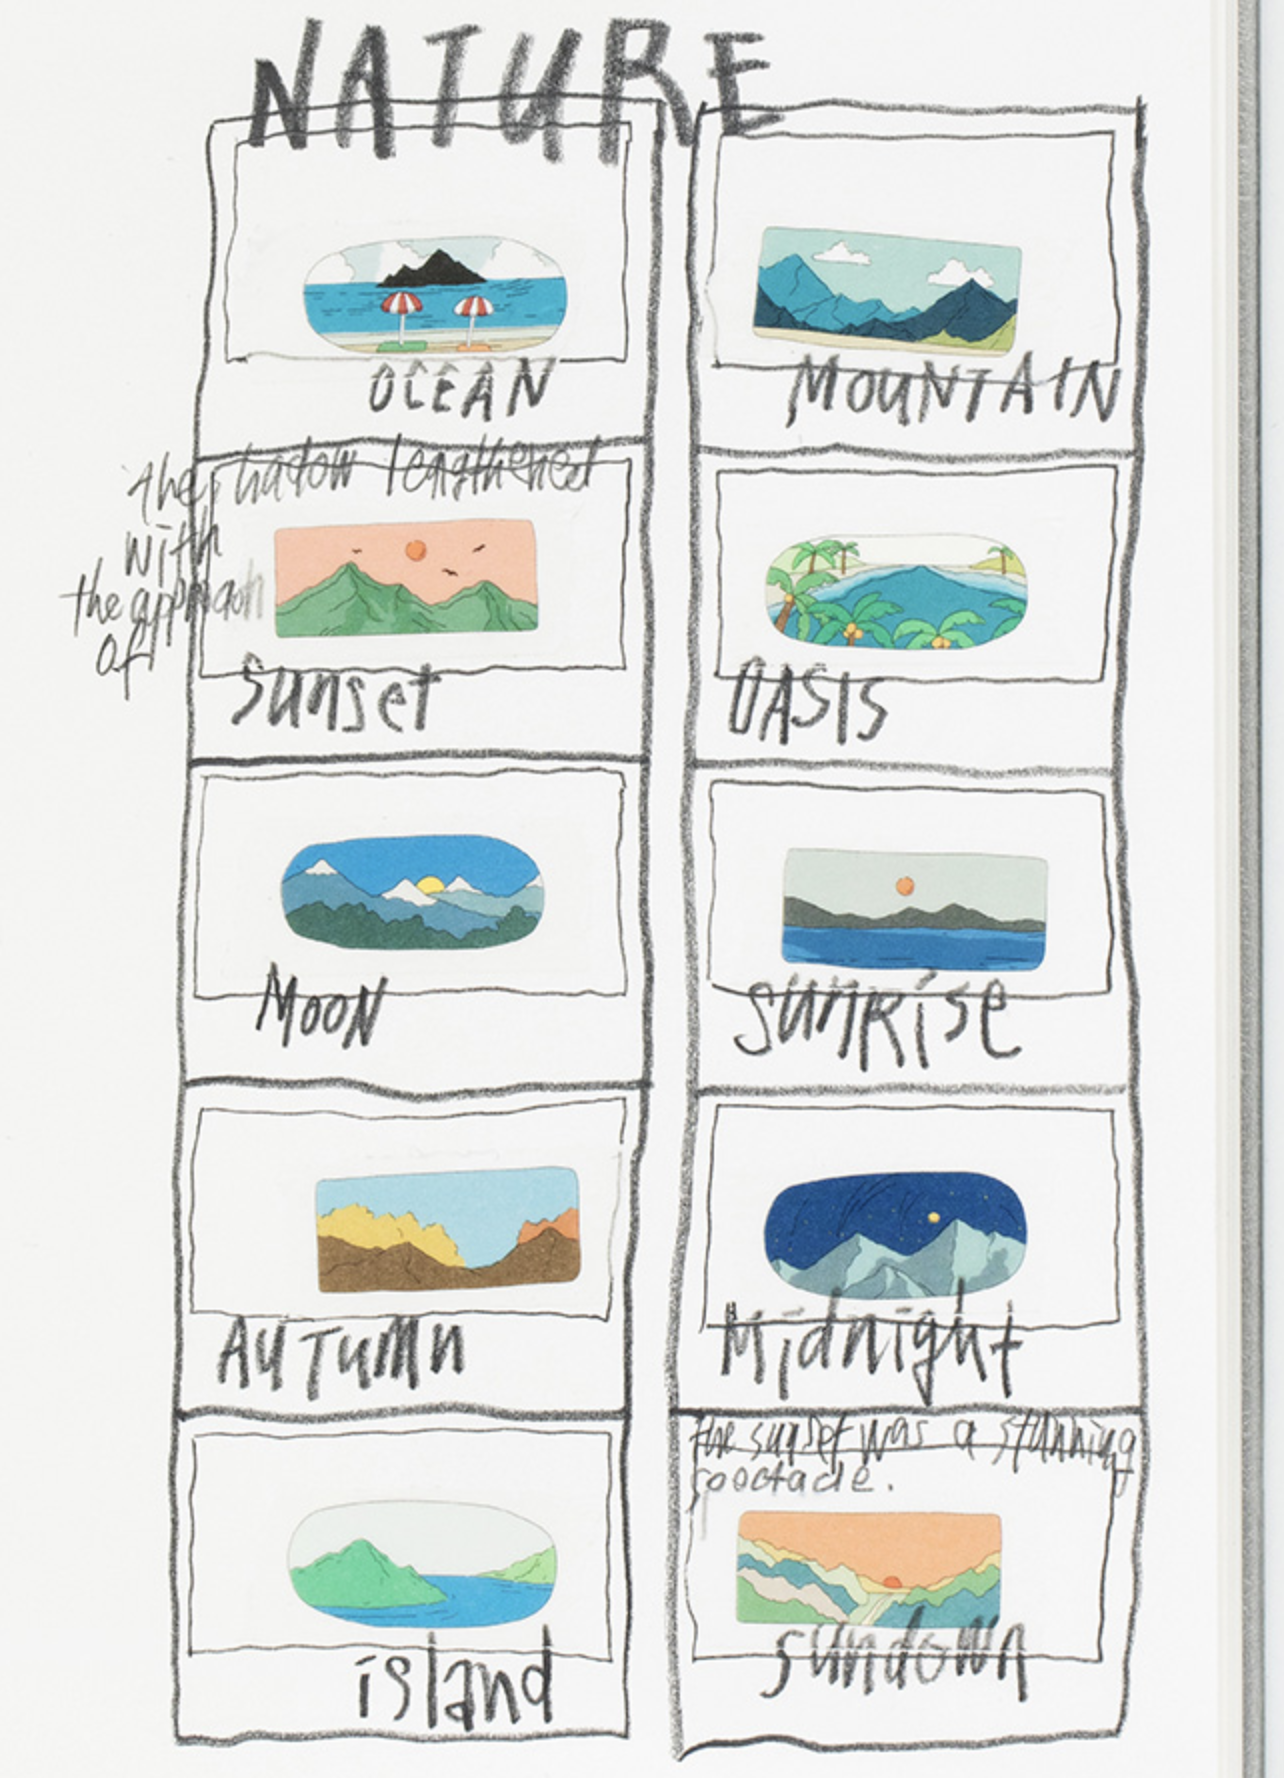 NATURE
OCEAN
MOUNTAIN
the shadow lengthened
with
the approach
of
Sunset
OASIS
MOON
sunRise
AUTUMn
Midnight
the sunset was a stunning
spectacle.
island
sundown